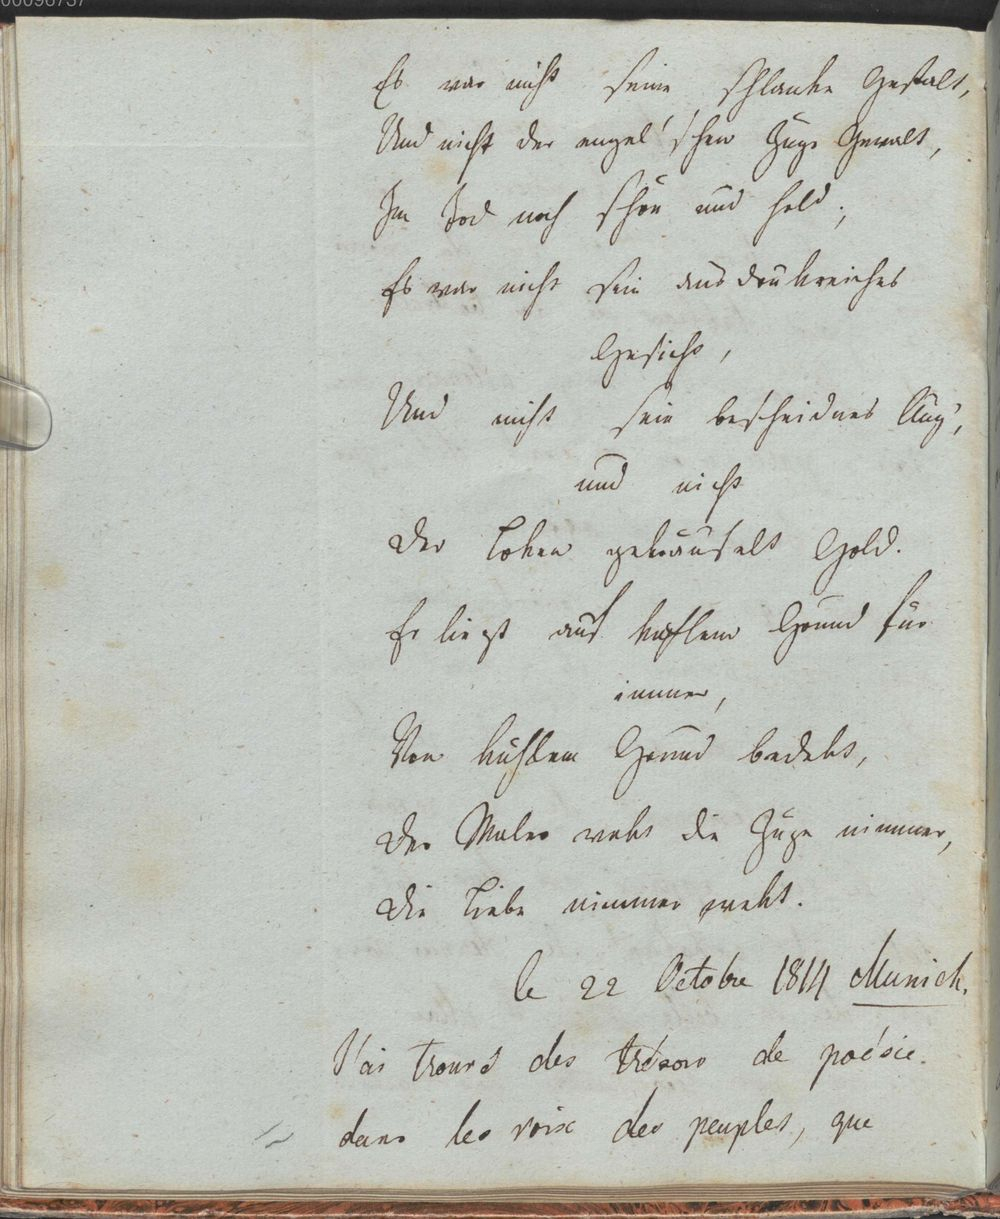 00096737
Es war nicht seine schlanke Gestalt,
Und nicht der engel'schen Züge Gewalt,
Im Tod noch schön und hold;
Es war nicht sein ausdrukreiches
Gesicht,
Und nicht sein bescheidnes Aug',
und nicht
Der Loken gekräuselt Gold.
Er liegt auf Grund für
immer,
Von kühlem Grund bedekt,
Der Maler wekt die Züge nimmer,
Die Liebe nimmer wekt.
le 22 Octobre 1814 Munich.
J'ai trouvé des trésors de poésie.
dans les voix des peuples, que